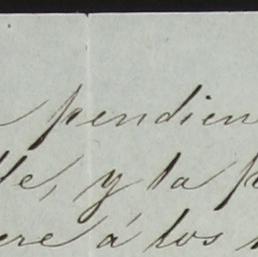 pendien
lle, y la p
ere á los